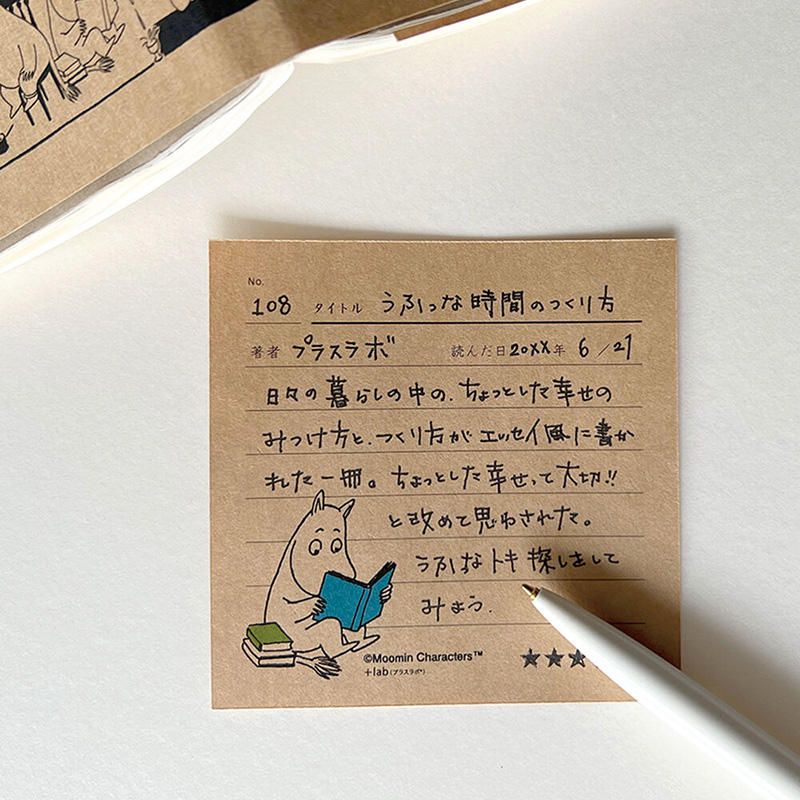 No.
108 タイトル うふっな時間のつくり方
著者 プラスラボ 読んだ日20XX年 6/27
日々の暮らしの中の、ちょっとした幸せの
みつけ方と、つくり方がエッセイ風に書か
れた一冊。ちょっとした幸せって大切!!
と改めて思わされた。
うふふなトキ探しをして
みよう.
©Moomin Characters™
+lab(プラスラボ®)